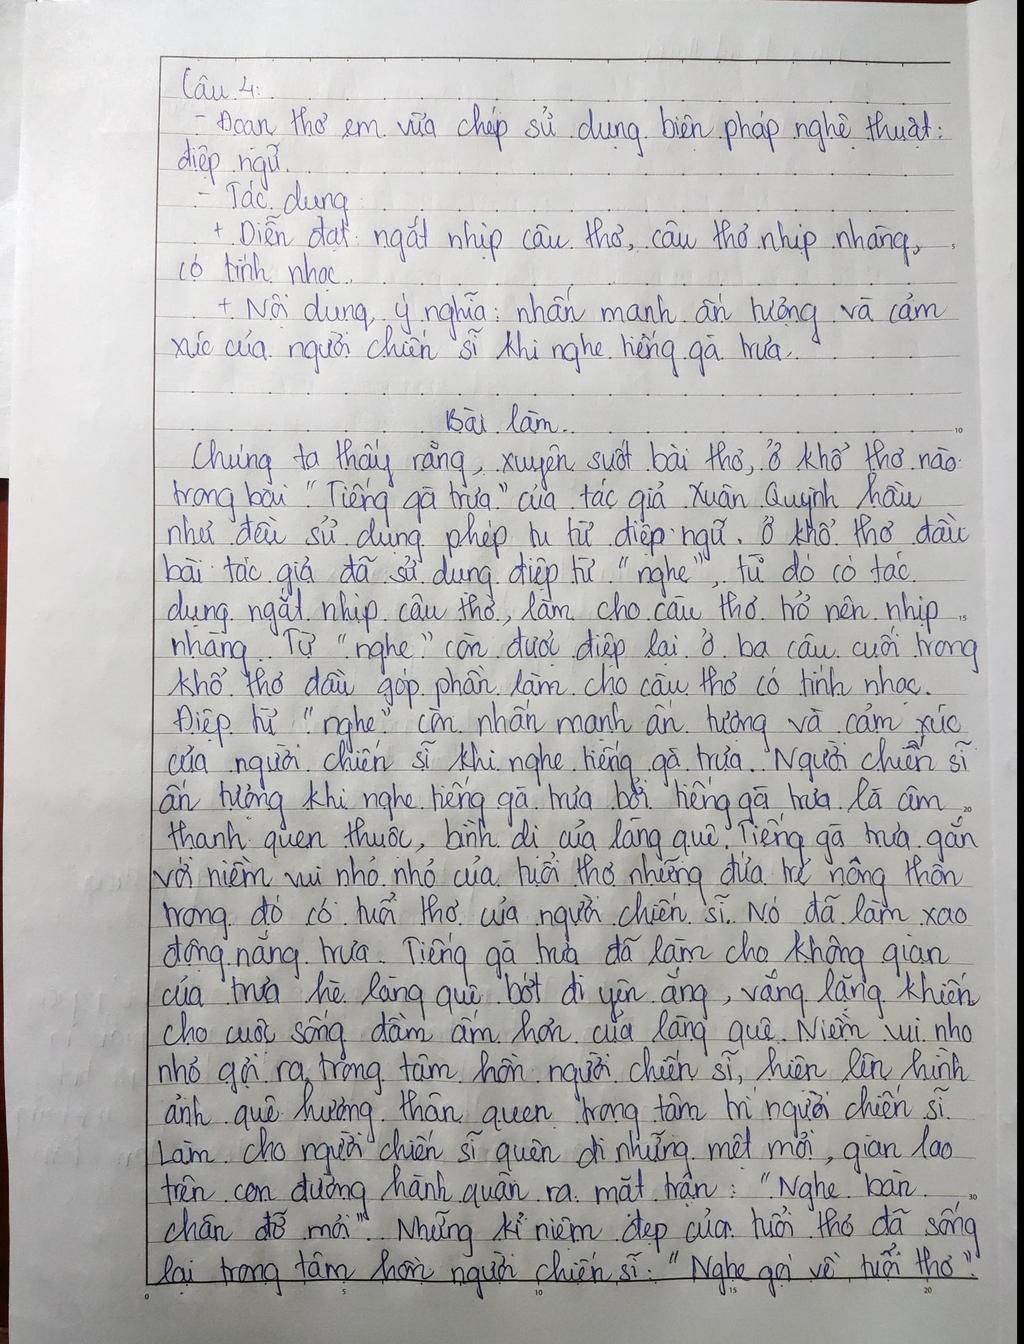 Câu 4:
- Đoạn thơ em vừa chép sử dụng biện pháp nghệ thuật:
điệp ngữ.
- Tác dụng
+ Diễn đạt: ngắt nhịp câu thơ, câu thơ nhịp nhàng,
có tính nhạc.
+ Nội dung, ý nghĩa: nhấn mạnh ấn tượng và cảm
xúc của người chiến sĩ khi nghe tiếng gà trưa.
Bài làm
Chúng ta thấy rằng, xuyên suốt bài thơ, ở khổ thơ nào
trong bài "Tiếng gà trưa" của tác giả Xuân Quỳnh hầu
như đều sử dụng phép tu từ điệp ngữ. Ở khổ thơ đầu
bài tác giả đã sử dụng điệp từ "nghe", từ đó có tác
dụng ngắt nhịp câu thơ, làm cho câu thơ trở nên nhịp
nhàng. Từ "nghe" còn được điệp lại ở ba câu cuối trong
khổ thơ đầu góp phần làm cho câu thơ có tính nhạc.
Điệp từ "nghe" còn nhấn mạnh ấn tượng và cảm xúc
của người chiến sĩ khi nghe tiếng gà trưa. Người chiến sĩ
ấn tượng khi nghe tiếng gà trưa bởi tiếng gà trưa là âm
thanh quen thuộc, bình dị của làng quê. Tiếng gà trưa gắn
với niềm vui nhỏ nhỏ của tuổi thơ những đứa trẻ nông thôn
trong đó có tuổi thơ của người chiến sĩ. Nó đã làm xao
động nắng trưa. Tiếng gà trưa đã làm cho không gian
của trưa hè làng quê bớt đi yên ắng, vắng lặng khiến
cho cuộc sống đầm ấm hơn của làng quê. Niềm vui nho
nhỏ gợi ra trong tâm hồn người chiến sĩ, hiện lên hình
ảnh quê hương thân quen trong tâm trí người chiến sĩ.
Làm cho người chiến sĩ quên đi những mệt mỏi, gian lao
trên con đường hành quân ra mặt trận: "Nghe bàn
chân đỡ mỏi". Những kỉ niệm đẹp của tuổi thơ đã sống
lại trong tâm hồn người chiến sĩ: "Nghe gọi về tuổi thơ".